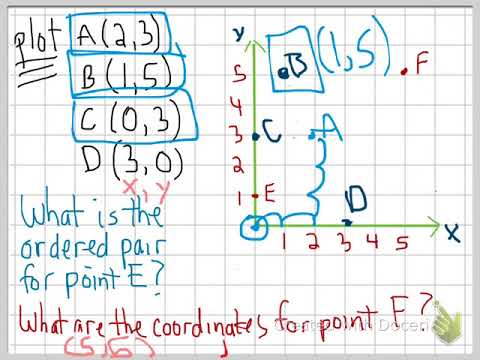 plot A (2,3)
B (1,5)
C (0,3)
D (3,0)
x, y
What is the
ordered pair
for point E?
What are the coordinates for point F?
(5,5)
y
5 B (1,5) F
4
3 C A
2
1 E
D
1 2 3 4 5 X
Created with Doceri